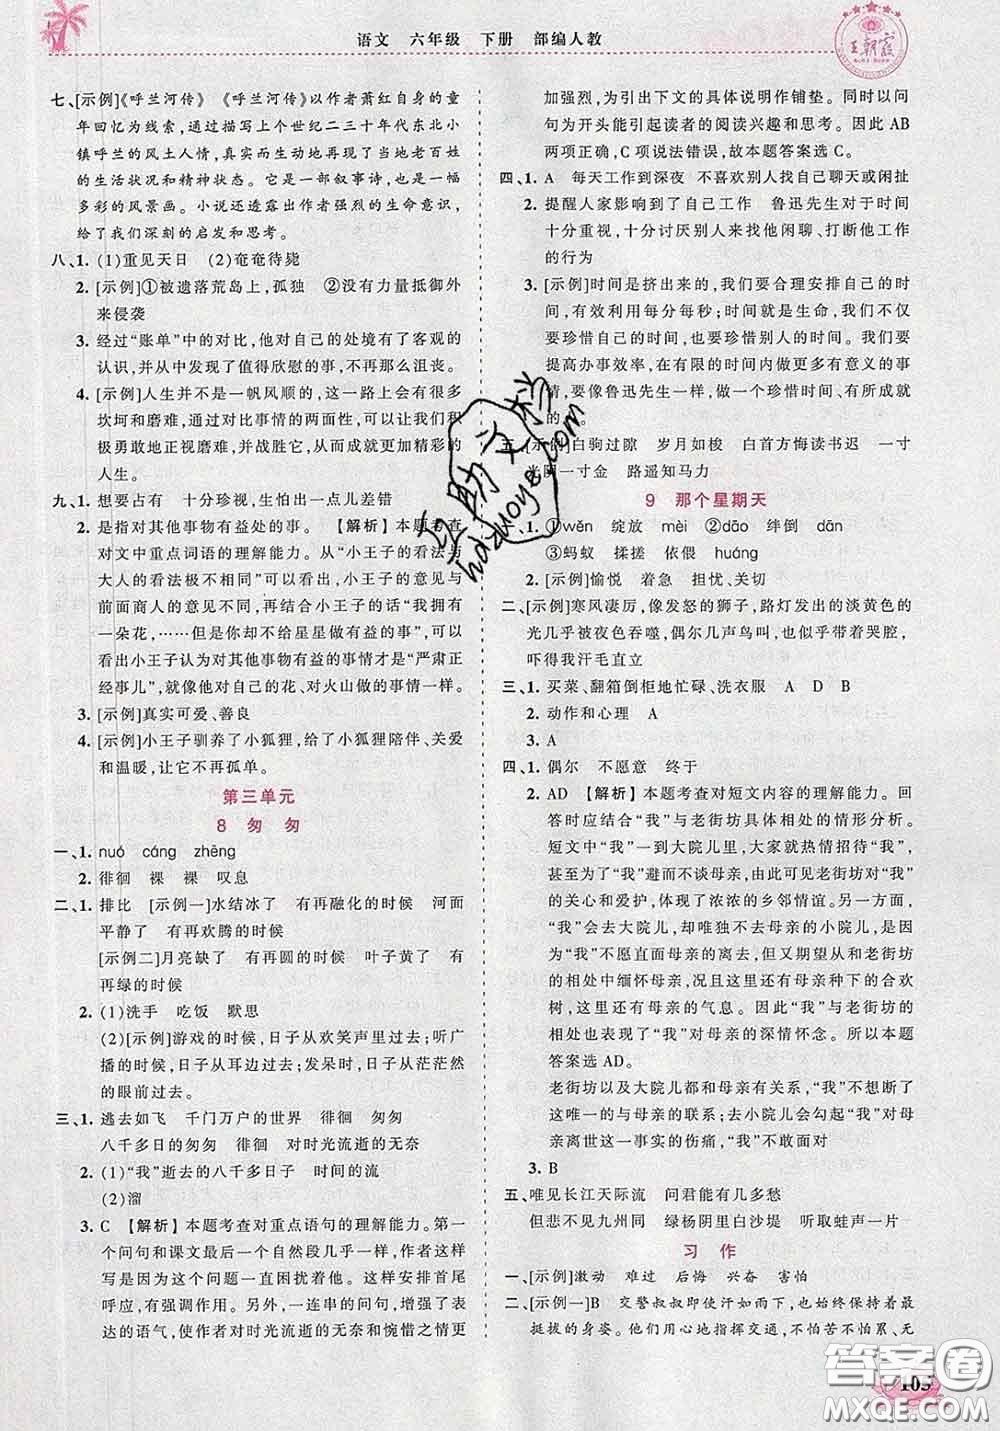 语文 六年级 下册 部编人教
王朝霞
七、[示例]《呼兰河传》 《呼兰河传》以作者萧红自身的童
年回忆为线索,通过描写上个世纪二三十年代东北小
镇呼兰的风土人情,真实而生动地再现了当地老百姓
的生活状况和精神状态。它是一部叙事诗,也是一幅
多彩的风景画。小说还透露出作者强烈的生命意识,
给了我们深刻的启发和思考。
八、1. (1)重见天日 (2)奄奄待毙
2. [示例]①被遗落荒岛上,孤独 ②没有力量抵御外
来侵袭
3. 经过“账单”中的对比,他对自己的处境有了客观的
认识,并从中发现了值得欣慰的事,不再那么沮丧。
4. [示例]人生并不是一帆风顺的,这一路上会有很多
坎坷和磨难,通过对比事情的两面性,可以让我们积
极勇敢地正视磨难,并战胜它,从而收获更加精彩的
人生。
九、1. 想要占有 十分珍视,生怕出一点儿差错
2. 是指对其他事物有益处的事。 【解析】本题考查
对文中重点词语的理解能力。从“小王子的看法与
大人的看法极不相同”可以看出小王子的意见与
前面商人的意见不同,再结合小王子的话“我拥有
一朵花,……但是你却不给星星做有益的事”,可以
看出小王子认为对其他事物有益的事情才是“严肃正
经事儿”,就像他对自己的花、对火山做的事情一样。
3. [示例]真实可爱、善良
4. [示例]小王子驯养了小狐狸,给了小狐狸陪伴、关爱
和温暖,让它不再孤单。
第三单元
8 匆 匆
一、1. nuó cáng zhēng
2. 徘徊 裸 裸 叹息
二、1. 排比 [示例一]水结冰了 有再融化的时候 河面
平静了 有再欢腾的时候
[示例二]月亮缺了 有再圆的时候 叶子黄了 有
再绿的时候
2. (1)洗手 吃饭 默思
(2)[示例]游戏的时候,日子从欢笑声里过去;听广
播的时候,日子从耳边过去;发呆时,便从茫茫然
的眼前过去。
三、1. 逃去如飞 千门万户的世界 徘徊 匆匆
八千多日的匆匆 徘徊 对时光流逝的无奈
2. (1)“我”逝去的八千多日子 时间的流
(2)溜
3. C 【解析】本题考查对重点语句的理解能力。第一
个问句和课文最后一个自然段几乎一样,作者这样
写是因为这个问题一直困扰着他。这样安排首尾
呼应,有强调作用。另外,一连串的问句,增强了表
达的语气,使作者对时光流逝的无奈和惋惜之情更
加强烈,为引出下文的具体说明作铺垫。同时以问
句为开头能引起读者的阅读兴趣和思考。因此 AB
两项正确,C项说法错误,故本题答案选C。
四、1. A 每天工作到深夜 不喜欢别人找自己聊天或闲扯
2. 提醒人家影响到了自己工作 鲁迅先生对于时间
十分重视,十分讨厌别人来找他闲聊、打断他工作
的行为
3. [示例]时间是挤出来的,我们要合理安排自己的时
间,有效利用每分每秒;时间就是生命,我们不仅
要珍惜自己的时间,也要珍惜别人的时间。我们要
提高办事效率,在有限的时间内做更多有意义的事
情,要像鲁迅先生一样,做一个珍惜时间、有所成就
的人。
五、[示例]白驹过隙 岁月如梭 白首方悔读书迟 一寸
光阴一寸金 路遥知马力
9 那个星期天
一、1. ①wěn 绽放 mèi ②dāo 绊倒 dān
③蚂蚁 揉搓 依偎 huáng
2. [示例]愉悦 着急 担忧、关切
二、[示例]寒风凄厉,像发怒的狮子,路灯发出的淡黄色的
光几乎被夜吞噬,偶尔几声鸟叫,也似乎带着哭腔,
吓得我汗毛直立
三、1. 买菜、翻箱倒柜地忙碌、洗衣服 A D B
2. 动作和心理 A
3. A
四、1. 偶尔 不愿意 终于
2. AD 【解析】本题考查对短文内容的理解能力。回
答时应结合“我”与老街坊具体相处的情形分析。
短文中“我”一到大院儿里,大家就热情招待“我”,
和“我”避而不谈母亲,从中可以看出老街坊对“我”
的关心和爱护,体现了浓浓的乡邻情谊。另一方面,
“我”去大院儿,却唯独不去母亲的小院儿,可以看
出“我”不愿直面母亲的离去,又期望从和老街坊
的相处中缅怀母亲,况且这里还有母亲种下的合欢
树,这里还有母亲的气息。因此“我”与老街坊的
相处也表现了“我”对母亲的深情怀念。所以本题
答案选 AD。
老街坊以及大院儿都和母亲有关系,“我”不想断了
这唯一的与母亲的联系;去小院儿会勾起“我”对母
亲离世这一事实的伤痛,“我”不敢面对
3. B
五、唯见长江天际流 问君能有几多愁
但悲不见九州同 绿杨阴里白沙堤 听取蛙声一片
习 作
一、[示例]激动 难过 后悔 兴奋 害怕
二、[示例一]B 交警叔叔即使汗如雨下,也始终保持着最
挺拔的身姿。他们用心地指挥交通,不怕苦不怕累、无
互助文档
hdzuoye.com
答案圈
MXQE.COM
105